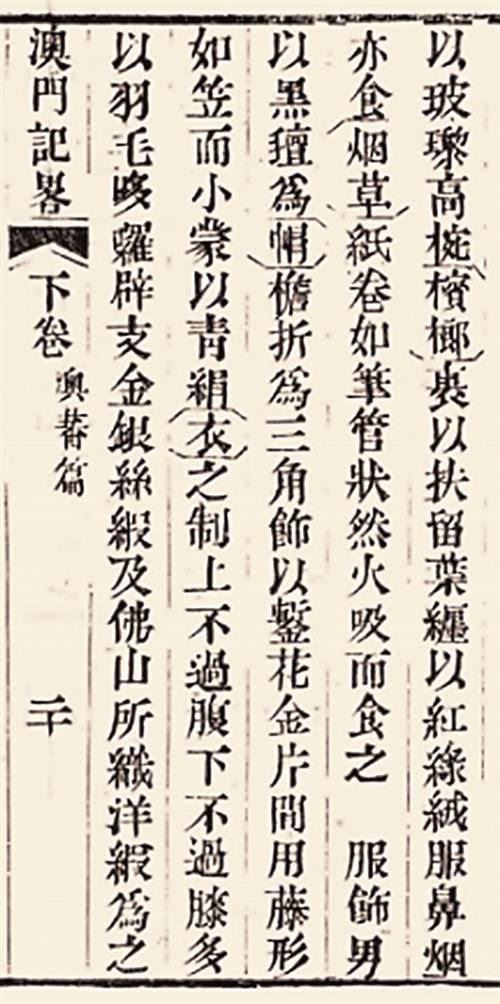 以玻瓈高椀檳榔裹以扶留葉纏以紅綠絨服鼻烟
亦食烟草紙卷如筆管狀然火吸而食之　服飾男
以黑氊爲㡌檐折爲三角飾以鏨花金片間用藤形
如笠而小蒙以青絹衣之制上不過腹下不過膝多
以羽毛哆囉辟支金銀絲緞及佛山所織洋緞爲之
澳門記畧　下卷　澳蕃篇　二十